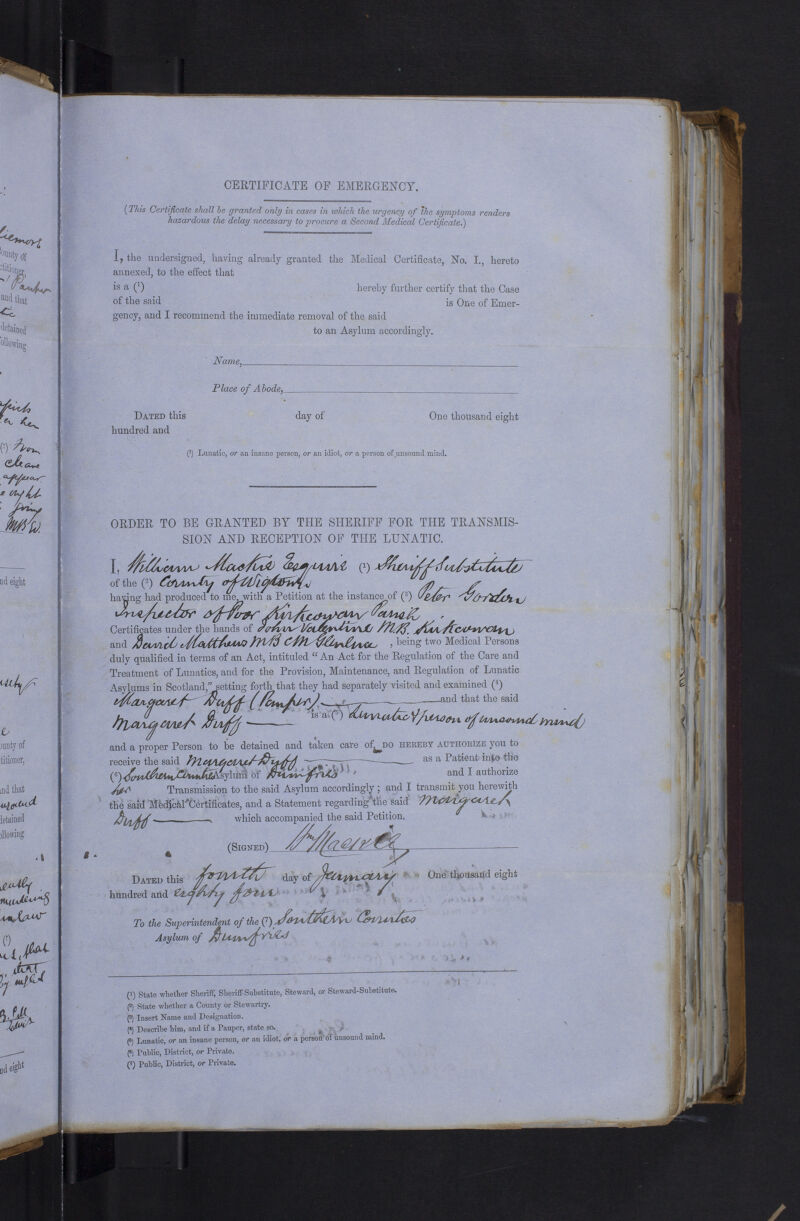 CERTIFICATE OF EMERGENCY.
(This Certificate shall be granted only in cases in which the urgency of the symptoms renders
hazardous the delay necessary to procure a Second Medical Certificate.)
I, the undersigned, having already granted the Medical Certificate, No. I., hereto
annexed, to the effect that
is a (¹) hereby further certify that the Case
of the said is One of Emer-
gency, and I recommend the immediate removal of the said
to an Asylum accordingly.
Name,
Place of Abode,
DATED this day of One thousand eight
hundred and
(¹) Lunatic, or an insane person, or an idiot, or a person of unsound mind.
ORDER TO BE GRANTED BY THE SHERIFF FOR THE TRANSMIS-
SION AND RECEPTION OF THE LUNATIC.
I, William Mackie Esquire (¹) Sheriff Substitute
of the (²) County of Wigtown
having had produced to me, with a Petition at the instance of (³) Peter Gordon
Inspector of Poor Kirkcowan Parish
Certificates under the hands of John Valentine M.B. Kirkcowan
and David Matthews MB CM Glenluce, being two Medical Persons
duly qualified in terms of an Act, intituled “An Act for the Regulation of the Care and
Treatment of Lunatics, and for the Provision, Maintenance, and Regulation of Lunatic
Asylums in Scotland,” setting forth that they had separately visited and examined (⁴)
Margaret Duff (Pauper) and that the said
Margaret Duff is a (⁵) Lunatic & person of unsound mind
and a proper Person to be detained and taken care of, DO HEREBY AUTHORIZE you to
receive the said Margaret Duff as a Patient into the
(⁶) Southern Counties Asylum of Dumfries and I authorize
her Transmission to the said Asylum accordingly; and I transmit you herewith
the said Medical Certificates, and a Statement regarding the said Margaret
Duff which accompanied the said Petition.
(SIGNED)
DATED this fourth day of January One thousand eight
hundred and eighty four
To the Superintendent of the (⁷) Southern Counties
Asylum of Dumfries
(¹) State whether Sheriff, Sheriff-Substitute, Steward, or Steward-Substitute.
(²) State whether a County or Stewartry.
(³) Insert Name and Designation.
(⁴) Describe him, and if a Pauper, state so.
(⁵) Lunatic, or an insane person, or an idiot, or a person of unsound mind.
(⁶) Public, District, or Private.
(⁷) Public, District, or Private.